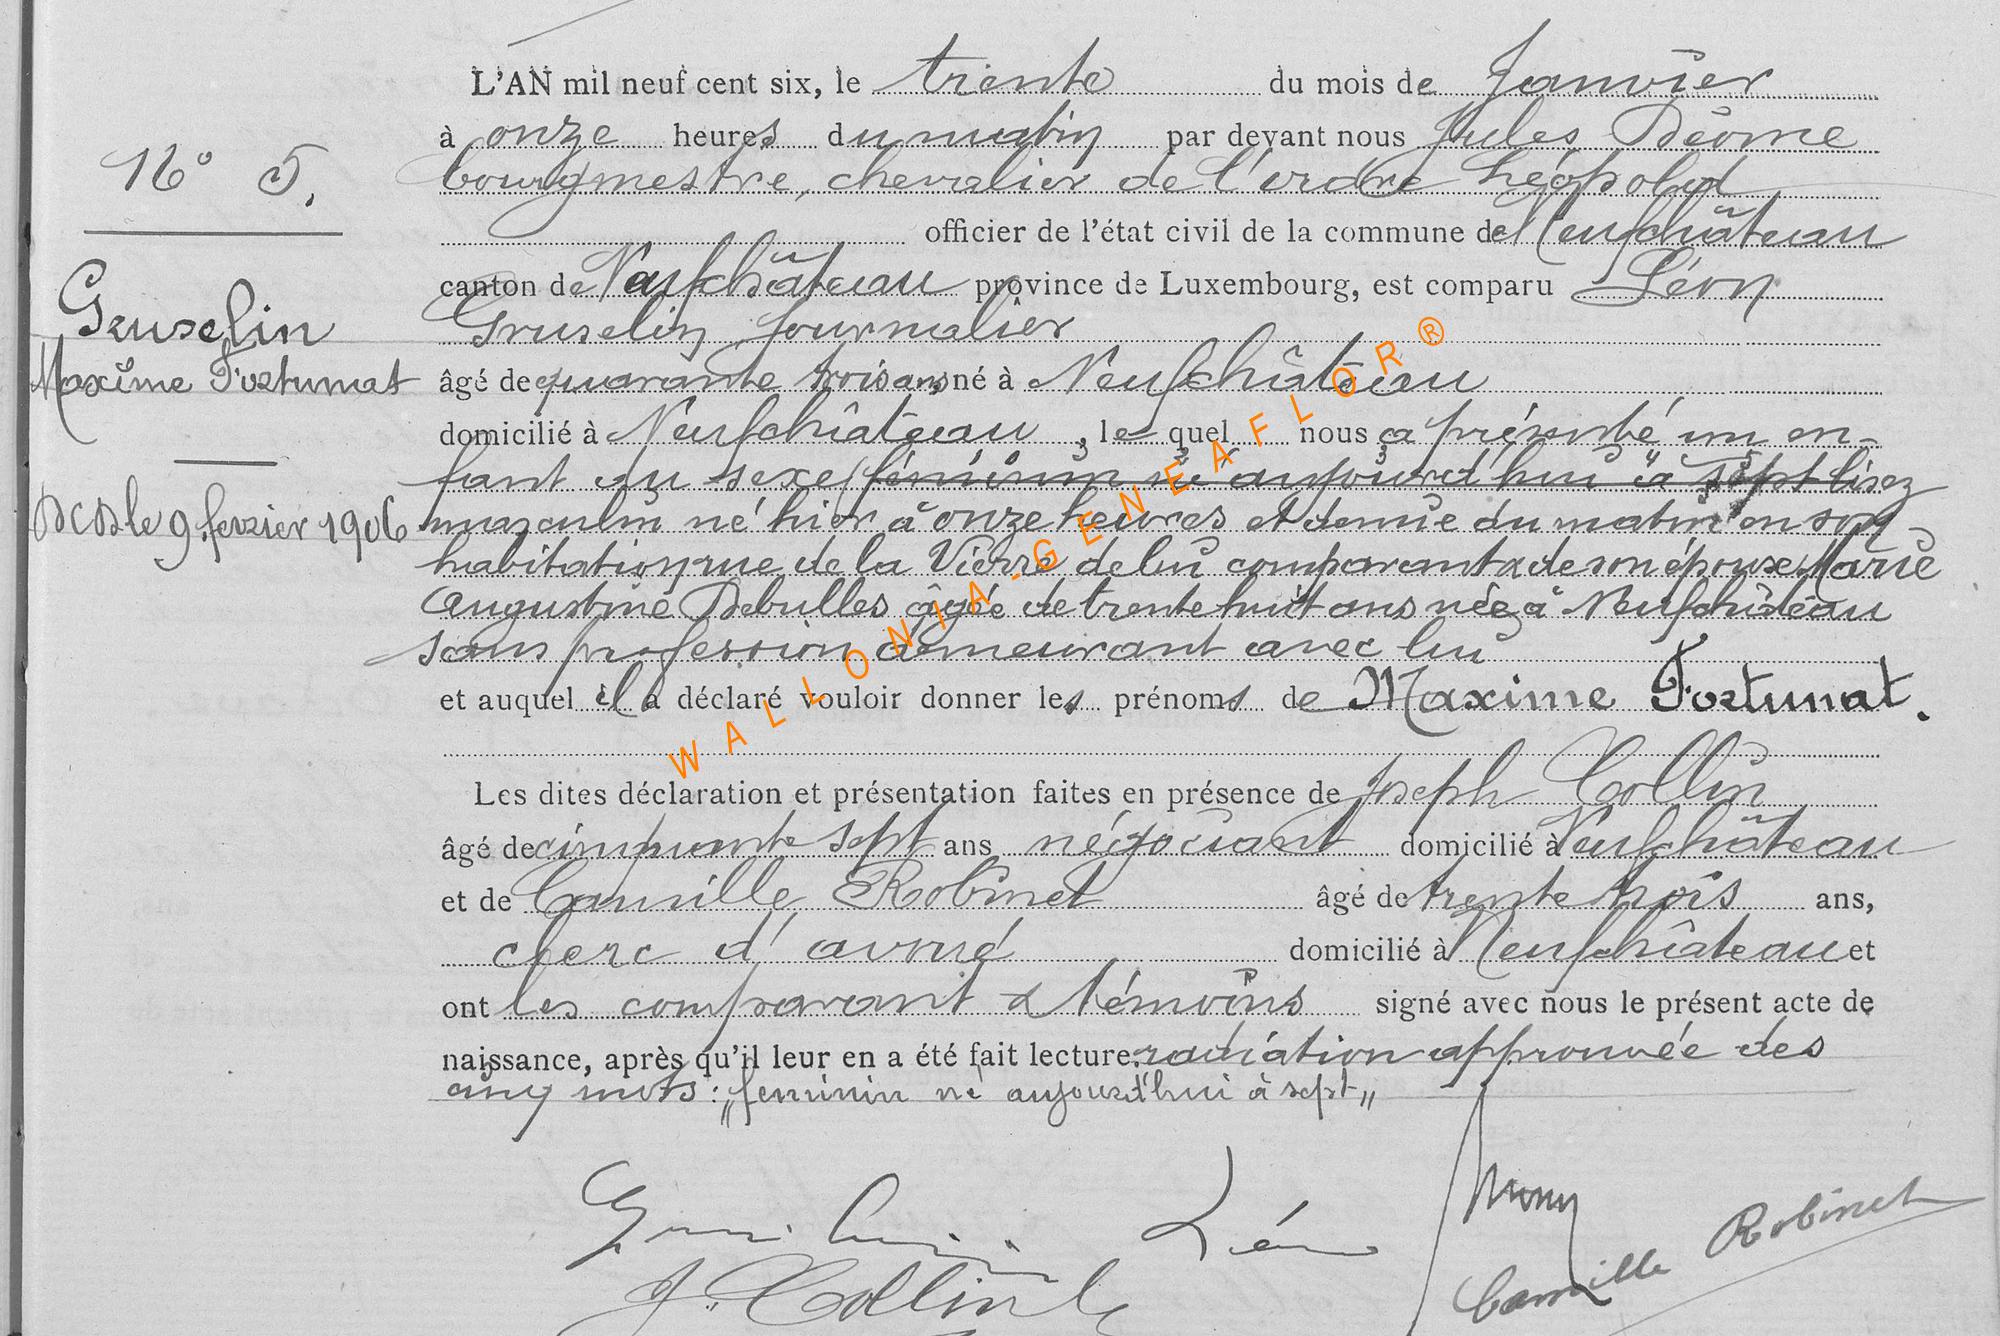 L'AN mil neuf cent six, le trente du mois de Janvier
à onze heures du matin par devant nous Jules
N° 5.
bourgmestre, chevalier de l'ordre Léopold
officier de l'état civil de la commune de Neufchâteau
canton de Neufchâteau province de Luxembourg, est comparu Léon
Gruselin
Gruselin journalier
Maxime Fortunat
âgé de quarante trois ans, né à Neufchâteau
domicilié à Neufchâteau, le quel nous a présenté un en-
fant du sexe (féminin né aujourd'hui à sept lisez
DCD le 9 fevrier 1906
masculin né hier à onze heures et demie du matin en son
habitation rue de la Vierre de lui comparant & de son épouse Marie
Augustine Debulles âgée de trente huit ans née à Neufchâteau
sans profession demeurant avec lui
et auquel il a déclaré vouloir donner les prénoms de Maxime Fortunat.
Les dites déclaration et présentation faites en présence de Joseph Collin
âgé de cinquante sept ans négociant domicilié à Neufchâteau
et de Camille Robinet âgé de trente trois ans,
clerc d'avoué domicilié à Neufchâteau et
ont les comparant & témoins signé avec nous le présent acte de
naissance, après qu'il leur en a été fait lecture. radiation approuvée des
cinq mots : „feminin né aujourd'hui à sept„
Léon
J. Collin
Camille Robinet
WALLONIA-GENEAFLOR®